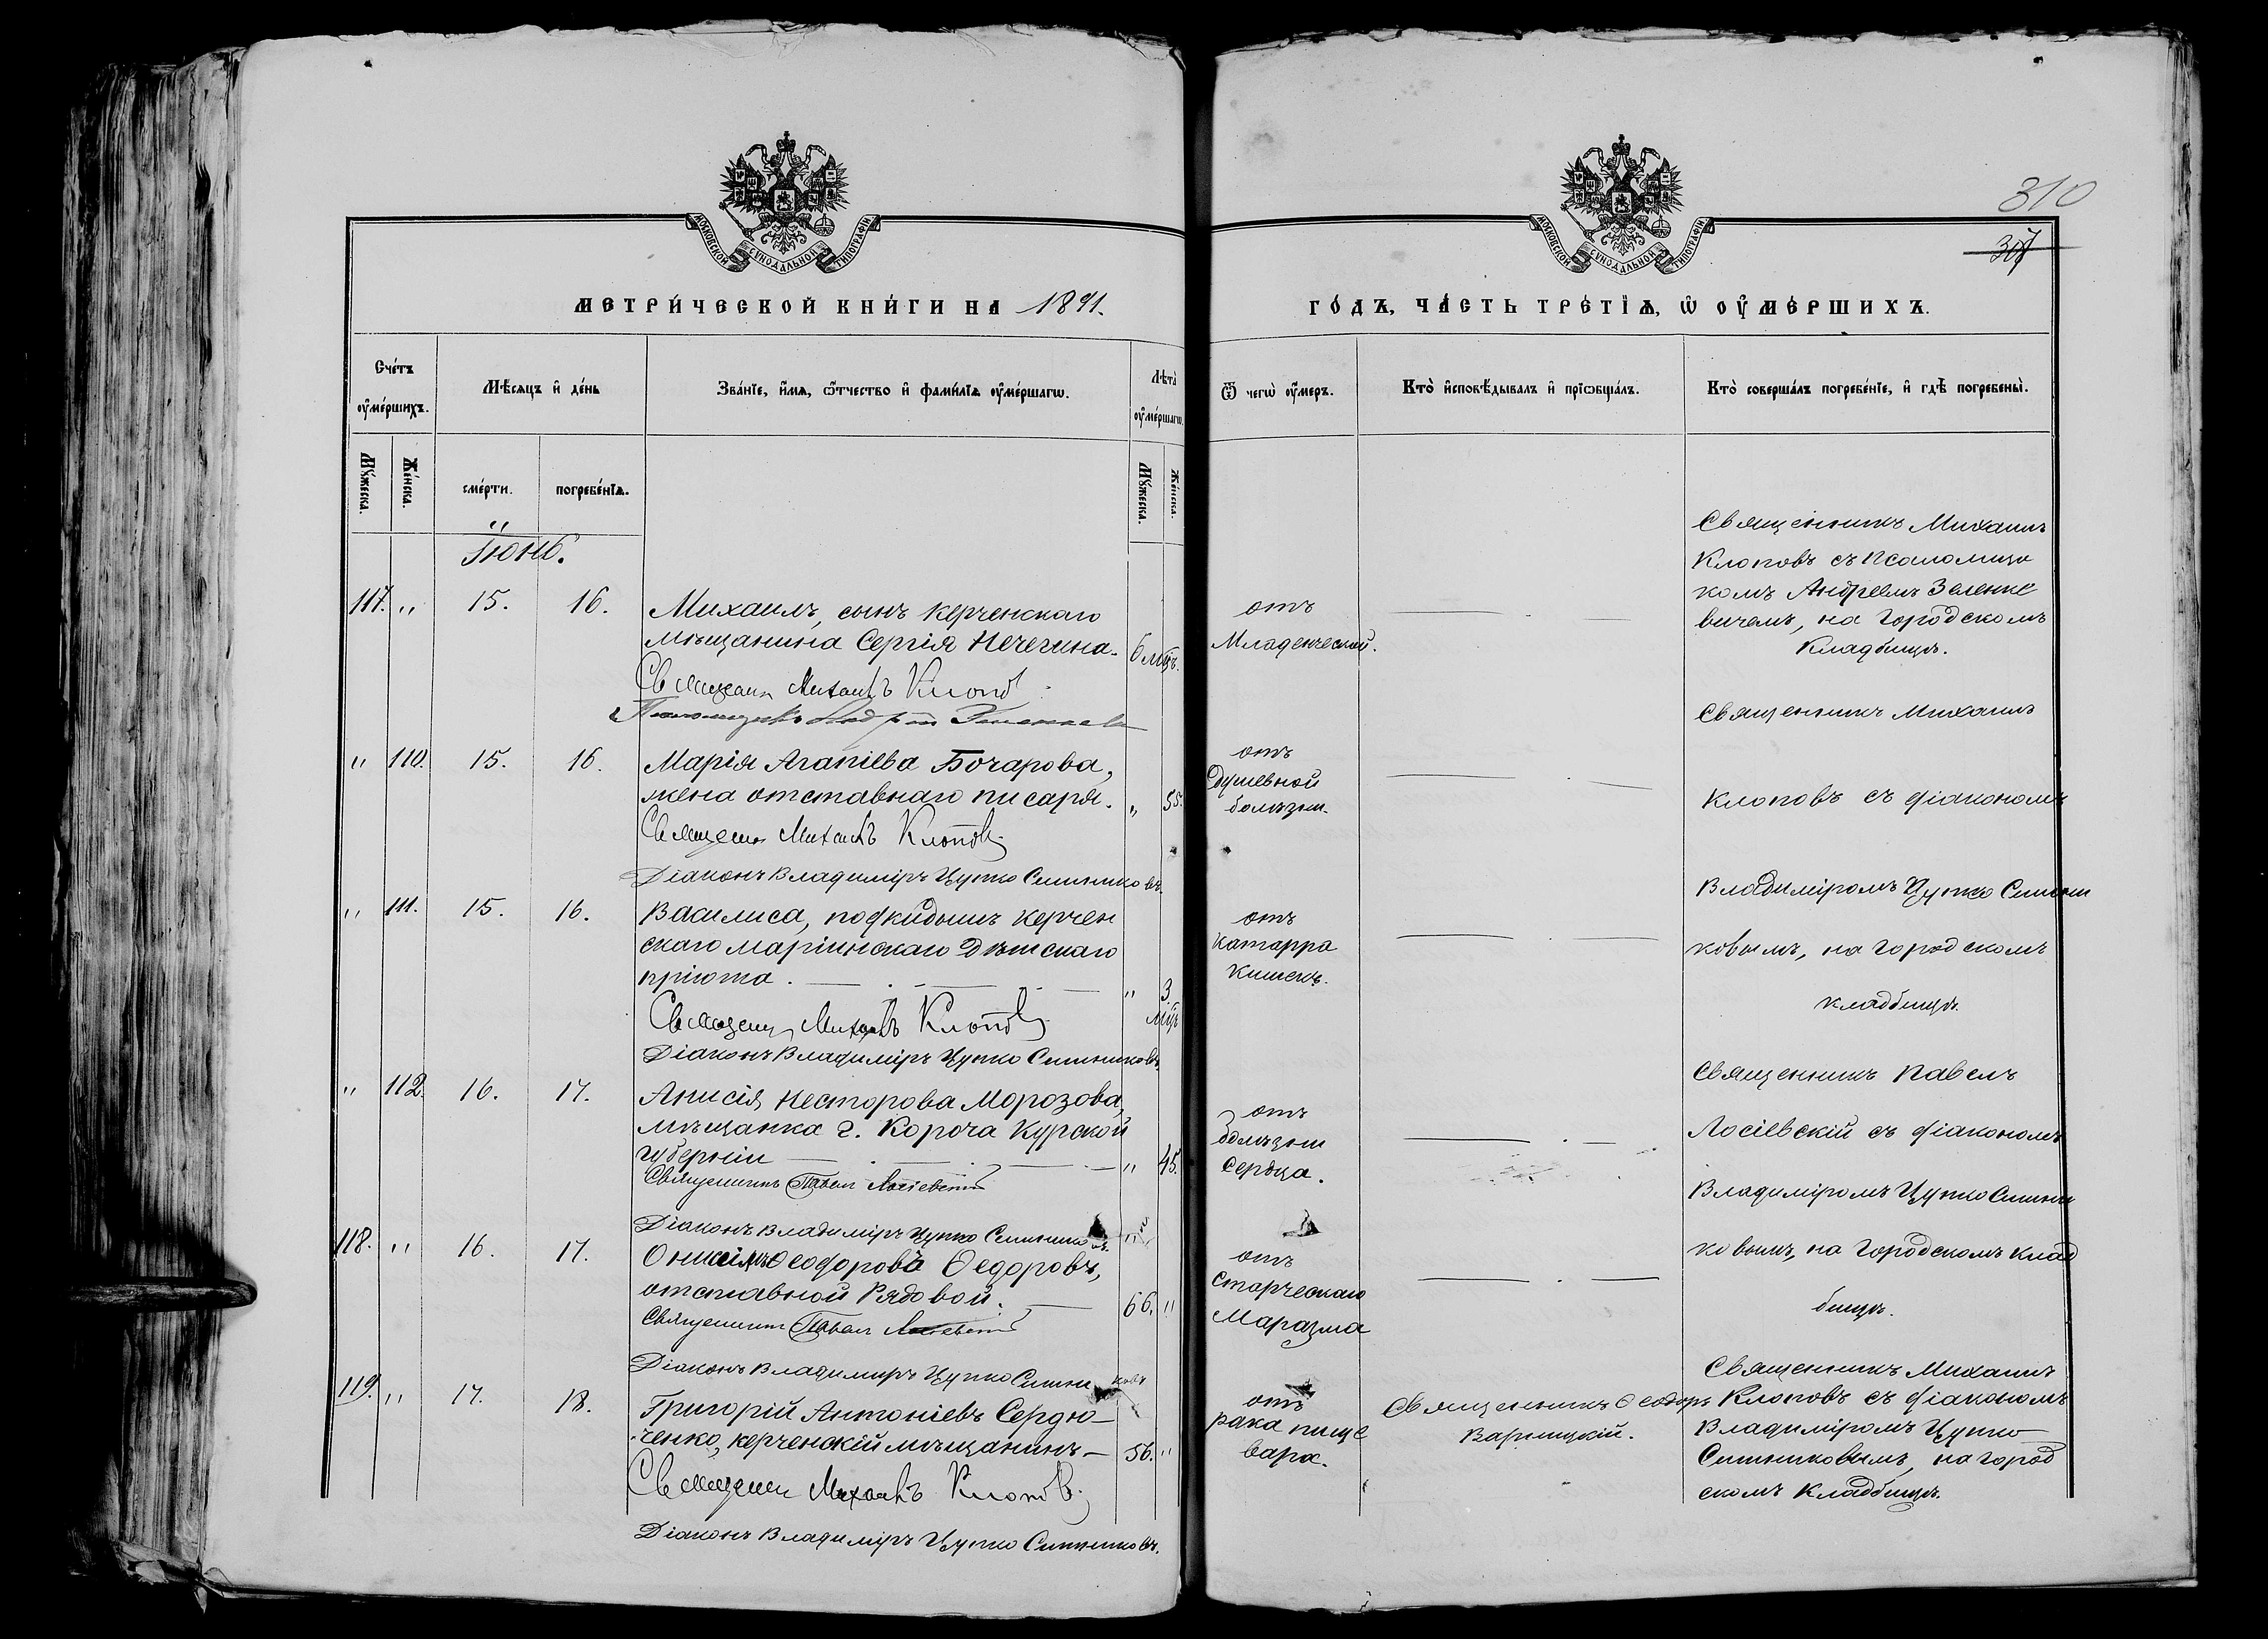 310
307
МОСКОВСКОЙ СѴНОДАЛЬНОЙ ТИПОГРАФІИ
МОСКОВСКОЙ СѴНОДАЛЬНОЙ ТИПОГРАФІИ
МЕТРИ́ЧЕСКОЙ КНИ́ГИ НА 1891.
ГО́ДЪ, ЧА́СТЬ ТРЕ́ТІѦ, Ѡ ОУ҆МЕ́РШИХЪ.
Сче́тъ оу҆ме́ршихъ.
Мѣ́сѧцъ и҆ де́нь
Зва́нїе, и҆́мѧ, ѻ҆́тчество и҆ фами́лїѧ оу҆ме́ршагѡ.
Лѣта̀ оу҆ме́ршагѡ.
Ѿ чегѡ̀ оу҆́меръ.
Кто̀ и҆сповѣ́дывалъ и҆ прїѡбща́лъ.
Кто̀ соверша́лъ погребе́нїе, и҆ гдѣ̀ погребены̀.
Мꙋ́жеска.
Же́нска.
сме́рти.
погребе́нїѧ.
Мꙋ́жеска.
Же́нска.
Іюнь.
117. " 15. 16. Михаилъ, сынъ керченскаго
мѣщанина Сергія Нечегина. 6 мцъ.
Священн Михаилъ Клопов
Псаломщикъ Андрей Зеленкев
отъ
Младенческой.
Священникъ Михаилъ
Клоповъ съ псаломщи
комъ Андреемъ Зеленке
вичемъ, на городскомъ
кладбищѣ.
" 110. 15. 16. Марія Агапіева Бочарова,
жена отставнаго писаря. " 55.
Священн Михаилъ Клопов
Діаконъ Владиміръ Цупко Ситниковъ.
отъ
душевной
болѣзни.
Священникъ Михаилъ
Клоповъ съ діакономъ
Владиміромъ Цупко Ситни
ковымъ, на городскомъ
кладбищѣ.
" 111. 15. 16. Василиса, подкидышъ керчен
скаго маріинскаго дѣтскаго
пріюта. " 3. мцъ
Священн Михаилъ Клопов
Діаконъ Владиміръ Цупко Ситниковъ.
отъ
катарра
кишекъ.
" 112. 16. 17. Анисія Несторова Морозова,
мѣщанка г. Короча Курской
губерніи " 45.
Священникъ Павел Лосіевскій
Діаконъ Владиміръ Цупко Ситниковъ.
отъ
болѣзни
сердца.
Священникъ Павелъ
Лосіевскій съ діакономъ
Владиміромъ Цупко Ситни
ковымъ, на городскомъ клад
бищѣ.
118. " 16. 17. Онисимъ Ѳеодоровъ Ѳедоровъ,
отставной рядовой. 66. "
Священникъ Павел Лосіевскій
Діаконъ Владиміръ Цупко Ситниковъ
отъ
старческаго
маразма
119. " 17. 18. Григорій Антоніевъ Сердю-
ченко, керченскій мѣщанинъ 56. "
Священн Михаилъ Клопов
Діаконъ Владиміръ Цупко Ситниковъ.
отъ
рака пище
вара.
Священникъ Ѳеодоръ
Варницкій.
Священникъ Михаилъ
Клоповъ съ діакономъ
Владиміромъ Цупко
Ситниковымъ, на город
скомъ кладбищѣ.